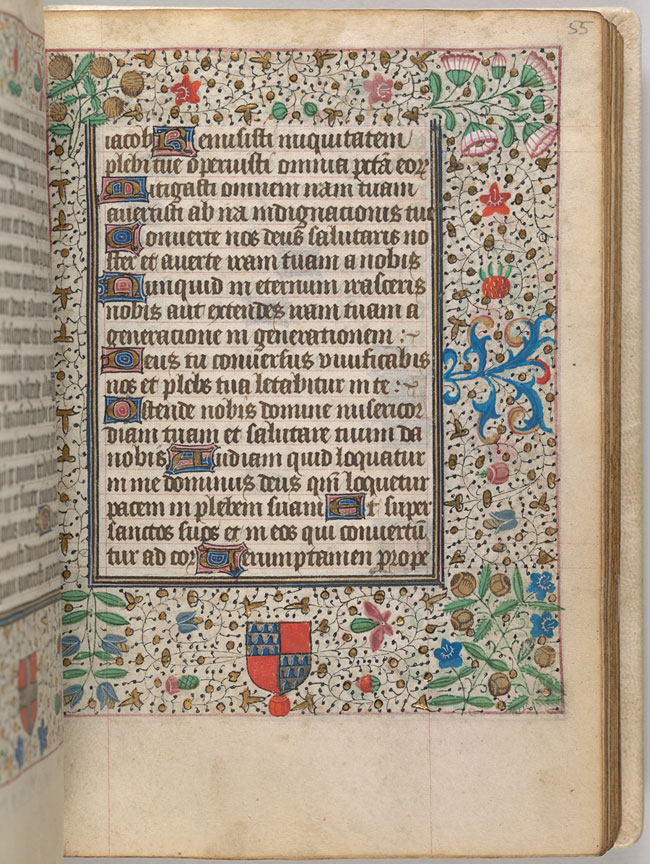 55
iacob Remisisti iniquitatem
plebi tue operuisti omnia pctã eorꝝ
Mitigasti omnem iram tuam
auertisti ab ira indignacionis tue
Conuerte nos deus salutaris no
ster et auerte iram tuam a nobis
Nunquid in eternum irasceris
nobis aut extendes iram tuam a
generacione in generationem :~
Deus tu conuersus viuificabis
nos et plebs tua letabitur in te :~
Ostende nobis domine misericor
diam tuam et salutare tuum da
nobis Audiam quid loquatur
in me dominus deus qm̃ loquetur
pacem in plebem suam Et super
sanctos suos et in eos qui conuertũ
tur ad cor Verumptamen prope